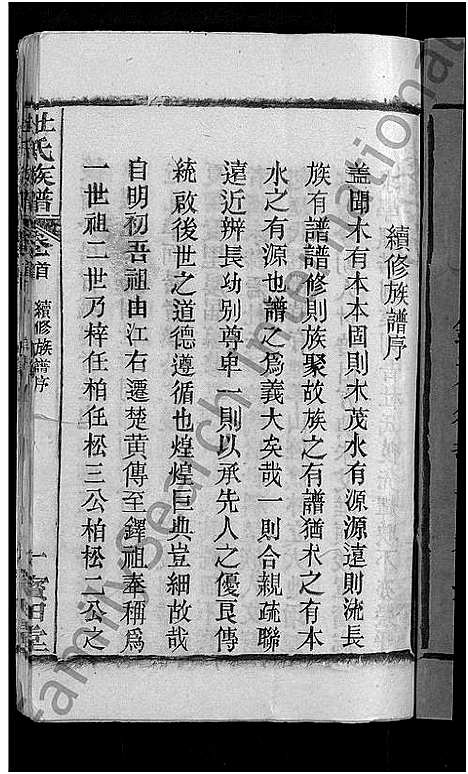 續修族譜序
蓋聞木有本本固則木茂水有源源遠則流長
族有譜譜修則族聚故族之有譜猶木之有本
水之有源也譜之爲義大矣哉一則合親疏聯
遠近辨長幼別尊卑一則以承先人之優良傳
統啟後世之道德遵循也煌煌巨典豈細故哉
自明初吾祖由江右遷楚黃傳至鐸祖奉稱爲
一世祖二世乃梓任柏任松三公柏松二公之
杜氏族譜
卷首
續修族譜序
一
FamilySearch International